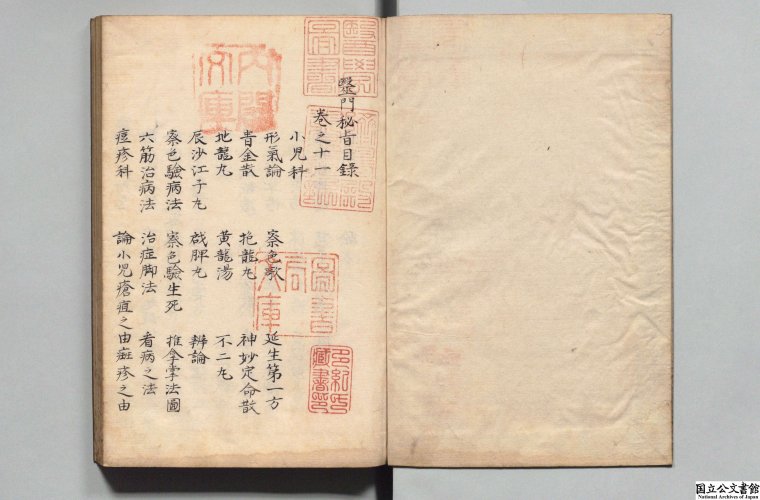 醫門秘旨目錄
卷之十一
小兒科
形氣論 察色歌 延生第一方
青金散 抱龍丸 神妙定命散
地龍丸 黃龍湯 不二丸
辰沙江子丸 戟脾丸 辨論
察色驗病法 察色驗生死 推拿掌法圖
六筋治病法 治症脚法 看病之法
痘疹科 論小兒瘡疽之由 斑疹之由
內閣文庫
醫學圖書
多紀氏藏書印
国立公文書館
National Archives of Japan